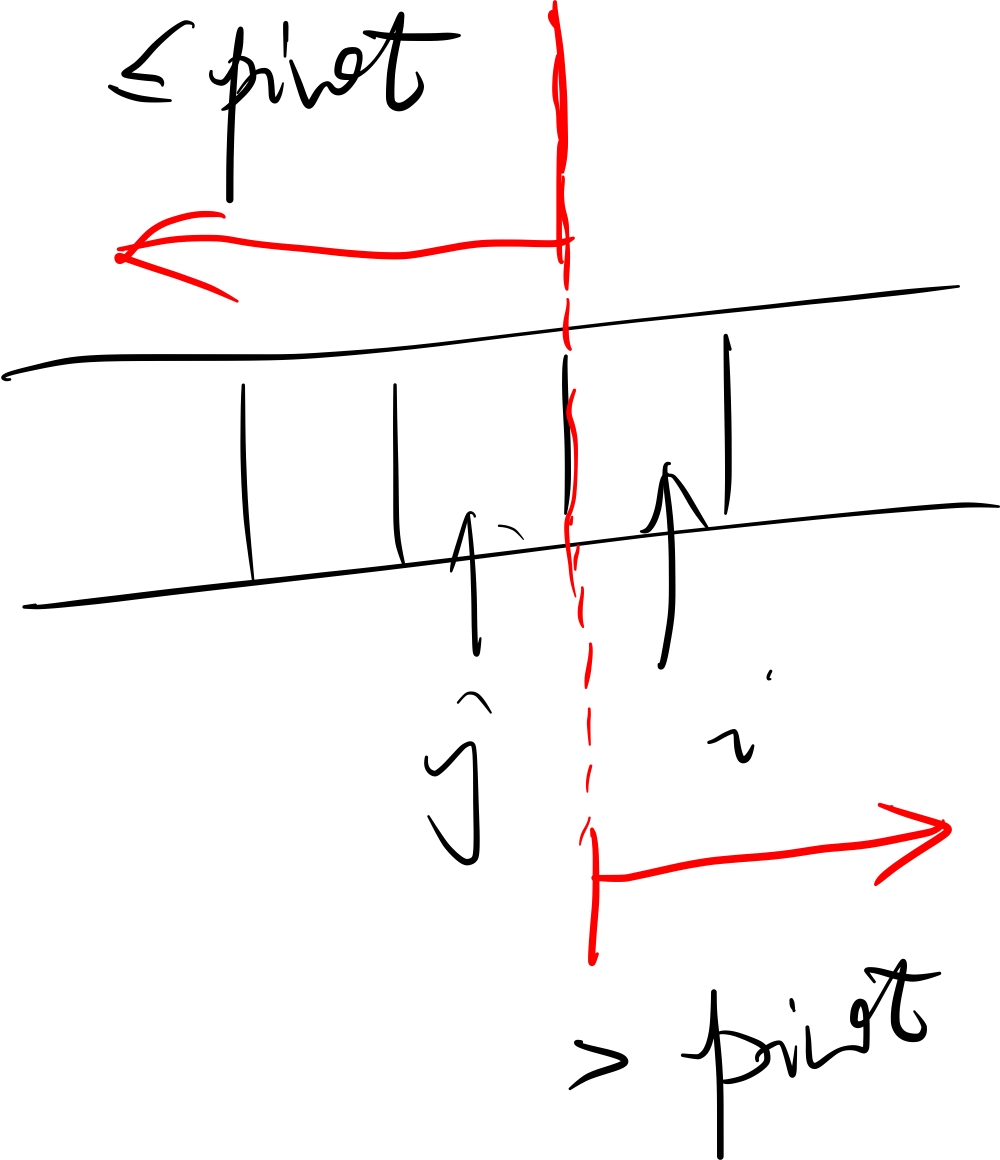 ≤ pivot
j i
> pivot